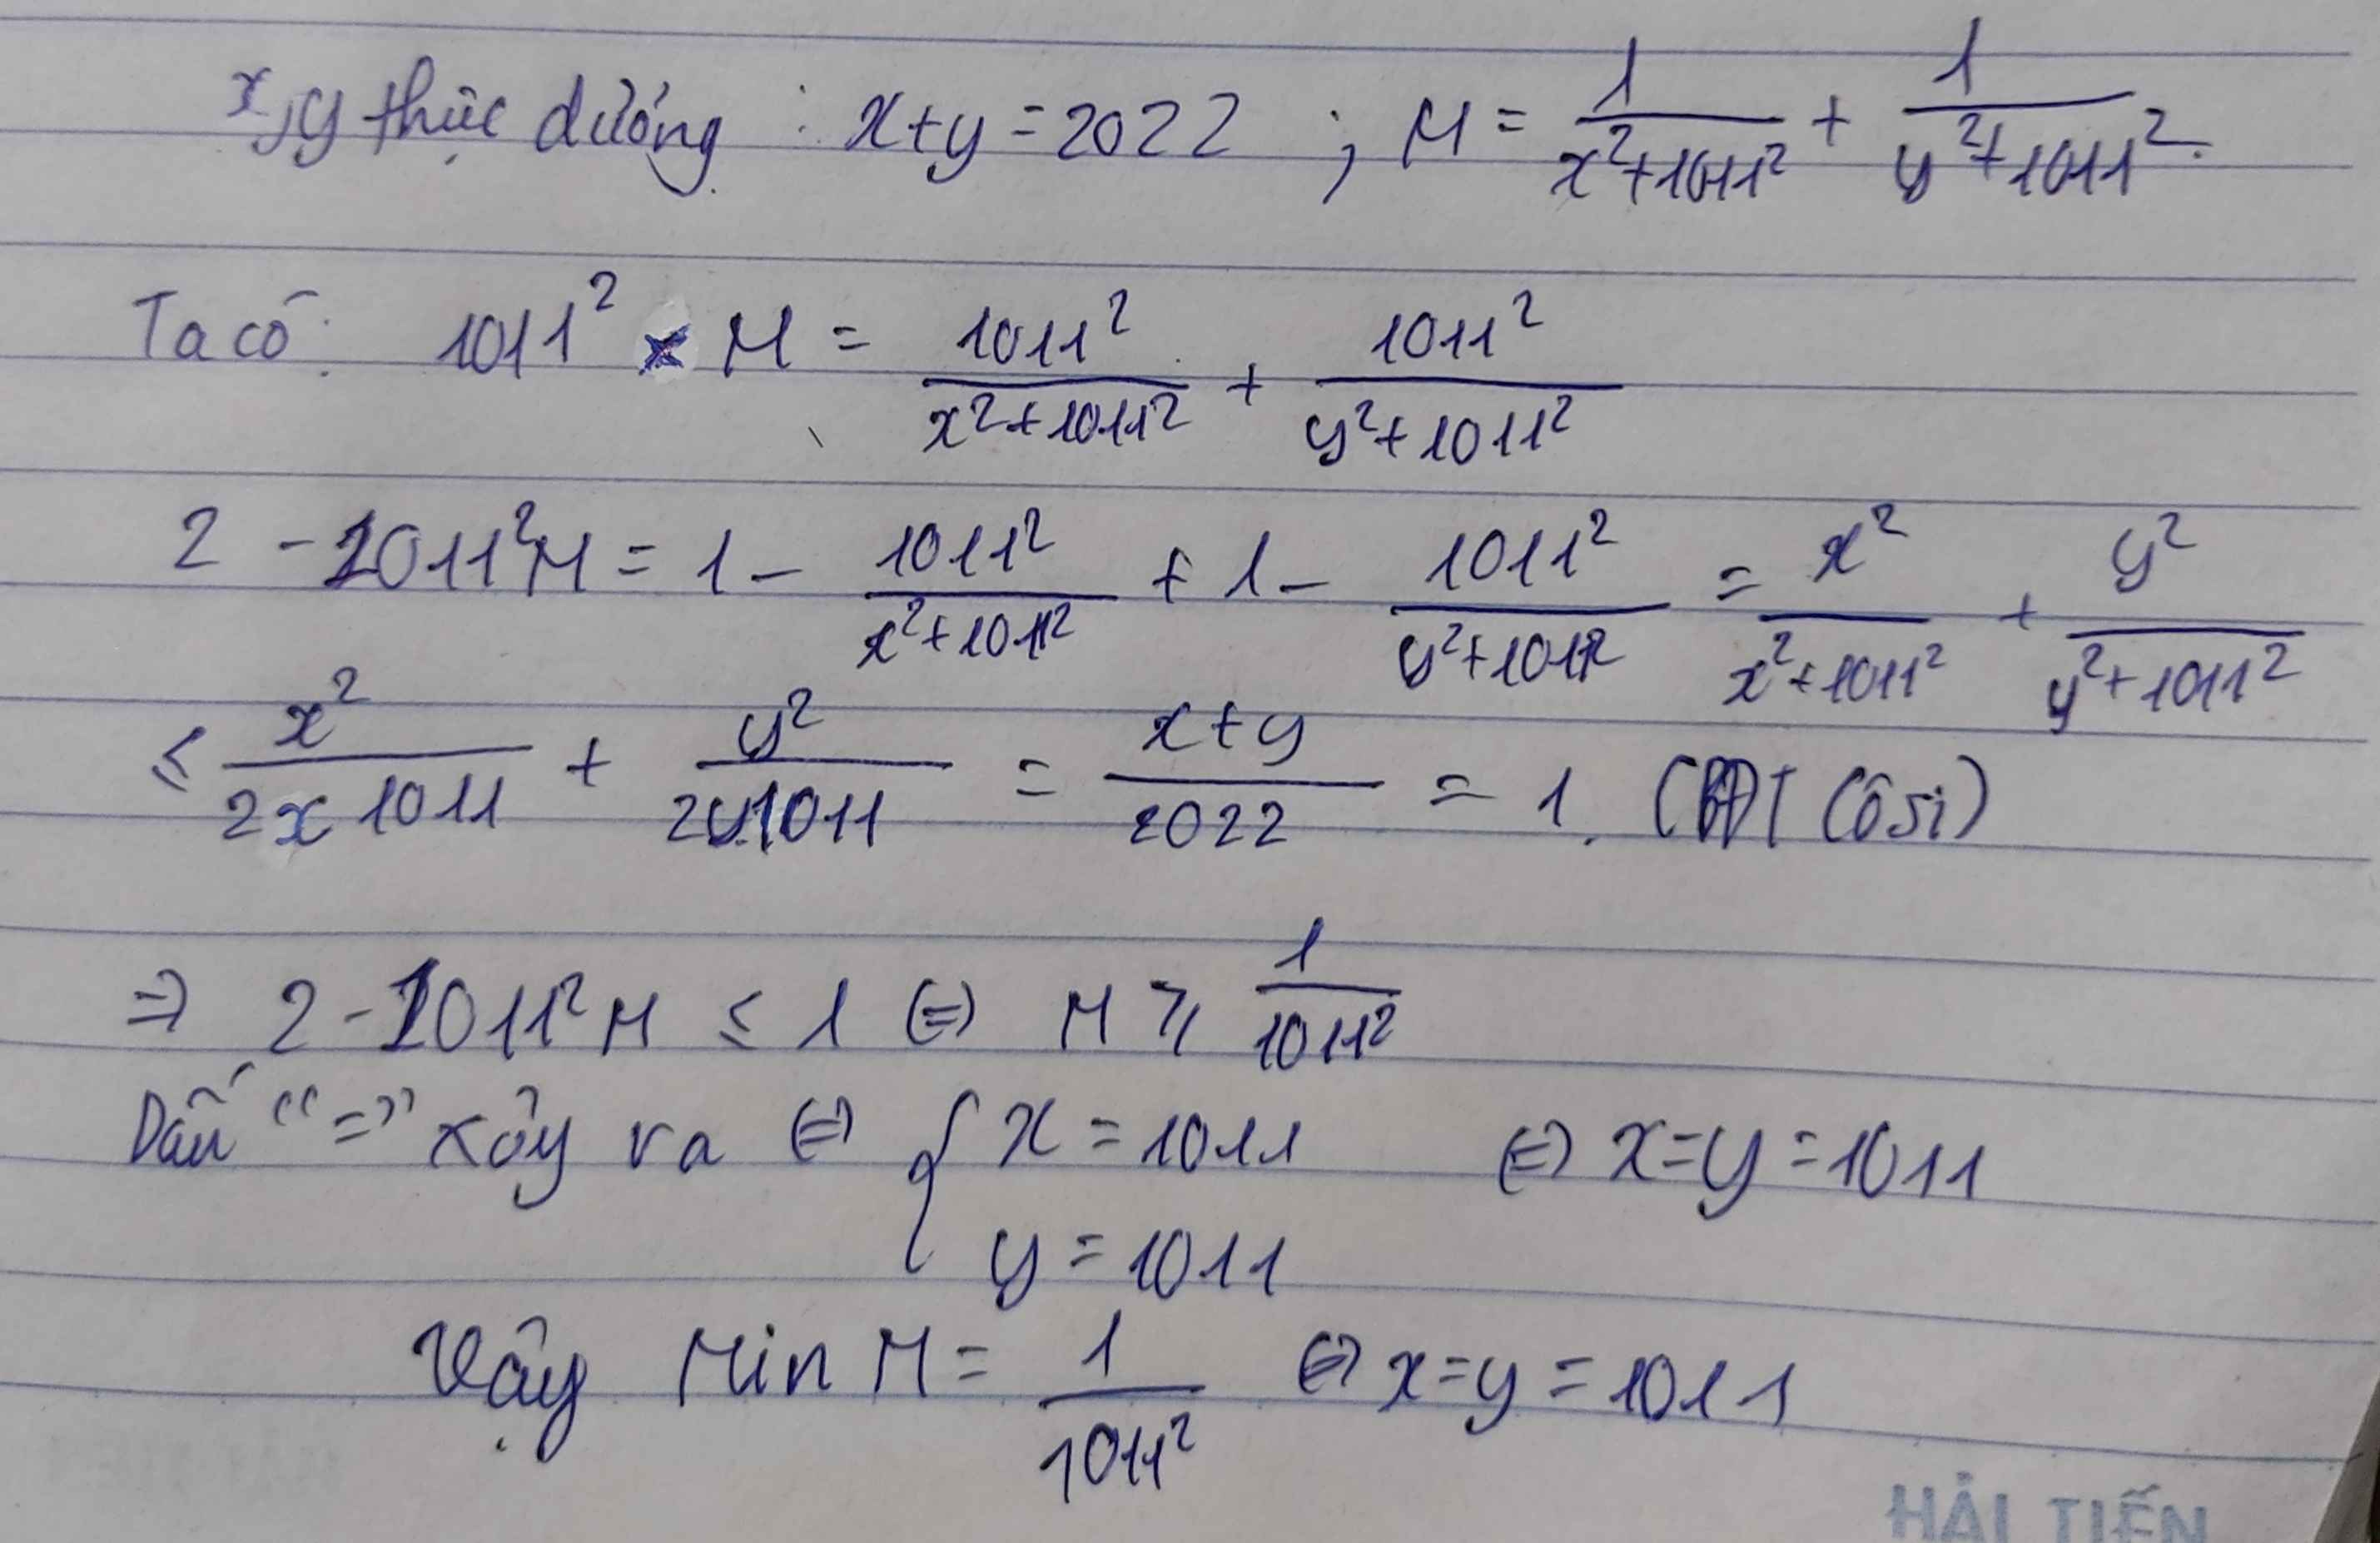 x, y thực dương : x+y = 2022 ; M = 1/(x²+1011²) + 1/(y²+1011²).
Ta có: 1011² × M = 1011²/(x²+1011²) + 1011²/(y²+1011²)
2 - 1011²M = 1 - 1011²/(x²+1011²) + 1 - 1011²/(y²+1011²) = x²/(x²+1011²) + y²/(y²+1011²)
≤ x²/(2x 1011) + y²/(2y.1011) = (x+y)/2022 = 1. (BĐT Côsi)
⇒ 2 - 1011²M ≤ 1 ⇔ M ≥ 1/1011²
Dấu "=" xảy ra ⇔ { x = 1011 ⇔ x=y=1011
y = 1011
Vậy Min M = 1/1011² ⇔ x=y=1011
HẢI TIẾN